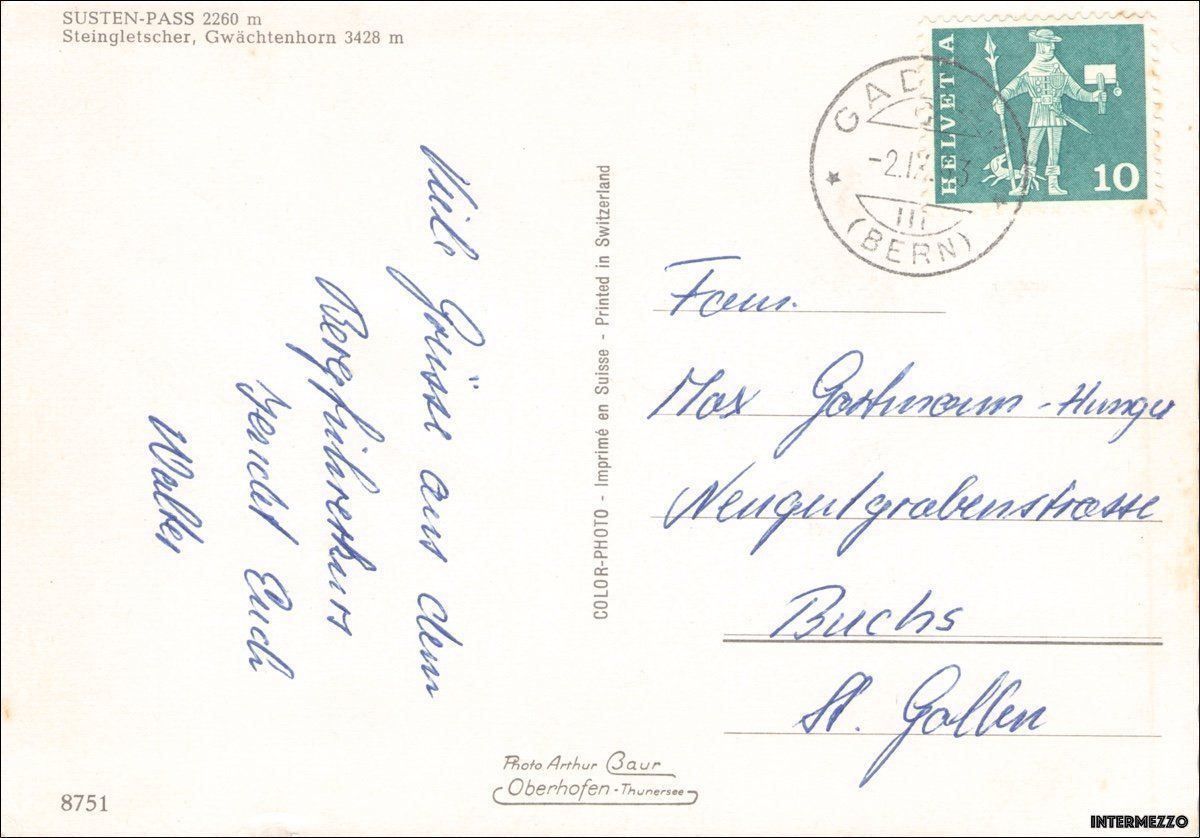 SUSTEN-PASS 2260 m
Steingletscher, Gwächtenhorn 3428 m
HELVETIA
10
GAD
-2.IX. 3
III
(BERN)
Viele Grüsse aus dem
Bergführerkurs
sendet Euch
Walter
COLOR-PHOTO - Imprimé en Suisse - Printed in Switzerland
Fam.
Max Gartmann-Hunger
Neugutgrabenstrasse
Buchs
St. Gallen
Photo Arthur Baur
Oberhofen - Thunersee
8751
INTERMEZZO